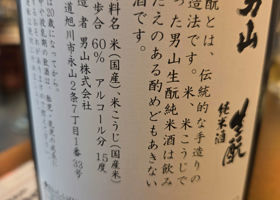 男山
生酛
純米酒
酛とは、伝統的な手造りの
造法です。米、米こうじで
った男山生酛純米酒は飲み
たえのある酌めどもあきない
酒です。
料名 米(国産)、米こうじ(国産米)
歩合 60% アルコール分 15度
造者 男山株式会社
道旭川市永山2条7丁目1番33号
は20歳になってから。